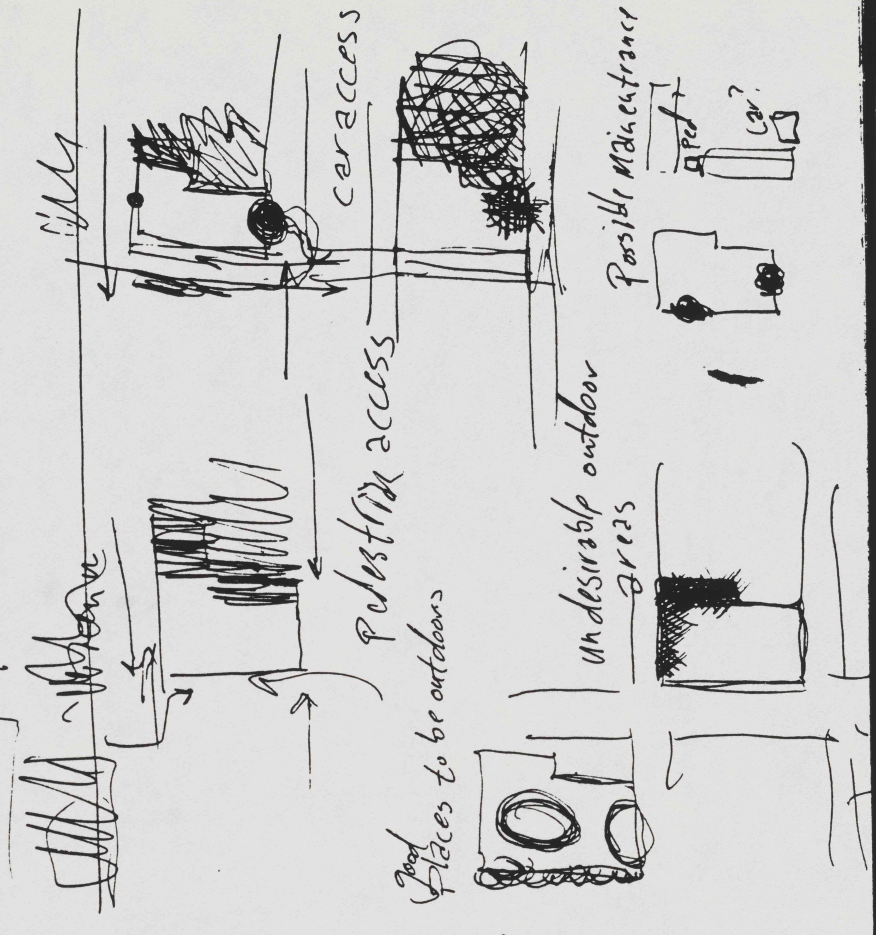 car access
Pedestrian access
good
places to be outdoors
undesirable outdoor
areas
Possible Main entrance
Ped
Car?